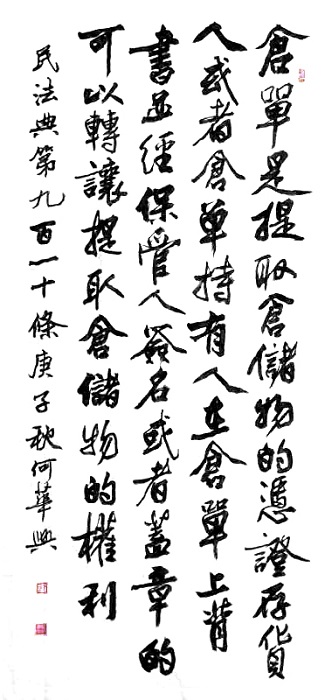 倉單是提取倉儲物的憑證存貨
人或者倉单持有人在倉單上背
書并經保管人簽名或者蓋章的
可以轉讓提取倉儲物的權利
民法典第九百一十條庚子秋何華興